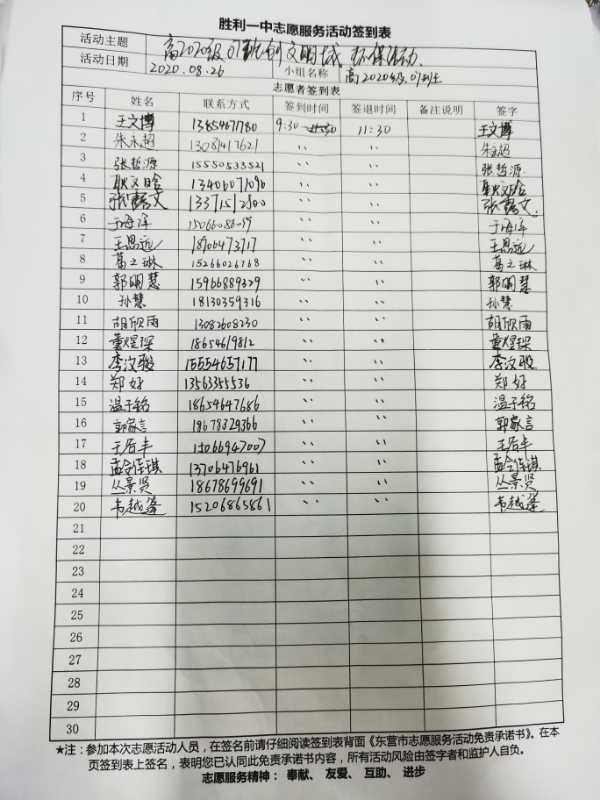 胜利一中志愿服务活动签到表
活动主题 高2020级07班创文明城,环保活动.
活动日期 2020.08.26 小组名称 高2020级07班
志愿者签到表
序号 姓名 联系方式 签到时间 签退时间 备注说明 签字
1 王文博 13854671780 9:30 11:30 王文博
2 朱永超 13081417621 〃 〃 朱永超
3 张哲源 15550533521 〃 〃 张哲源
4 耿文晗 〃 〃 耿文晗
5 张露文 〃 〃 张露文
6 于海洋 〃 〃 于海洋
7 王思远 18706473717 〃 〃 王思远
8 葛之琳 15266026768 〃 〃 葛之琳
9 郭明慧 15966889329 〃 〃 郭明慧
10 孙慧 18130359316 〃 〃 孙慧
11 胡欣雨 13082608230 〃 〃 胡欣雨
12 董煜琛 18654619812 〃 〃 董煜琛
13 李汶骏 15554657177 〃 〃 李汶骏
14 郑好 13563355536 〃 〃 郑好
15 温子铭 18654647686 〃 〃 温子铭
16 郭家言 18678329366 〃 〃 郭家言
17 王后丰 15066947007 〃 〃 王后丰
18 孟令倢琪 13706476961 〃 〃 孟令倢琪
19 丛景贤 18678699691 〃 〃 丛景贤
20 韦越峰 15206865861 〃 〃 韦越峰
21
22
23
24
25
26
27
28
29
30
★注：参加本次志愿活动人员，在签名前请仔细阅读签到表背面《东营市志愿服务活动免责承诺书》。在本
页签到表上签名，表明您已认同此免责承诺书内容，所有活动风险由签字者和监护人自负。
志愿服务精神：奉献、友爱、互助、进步